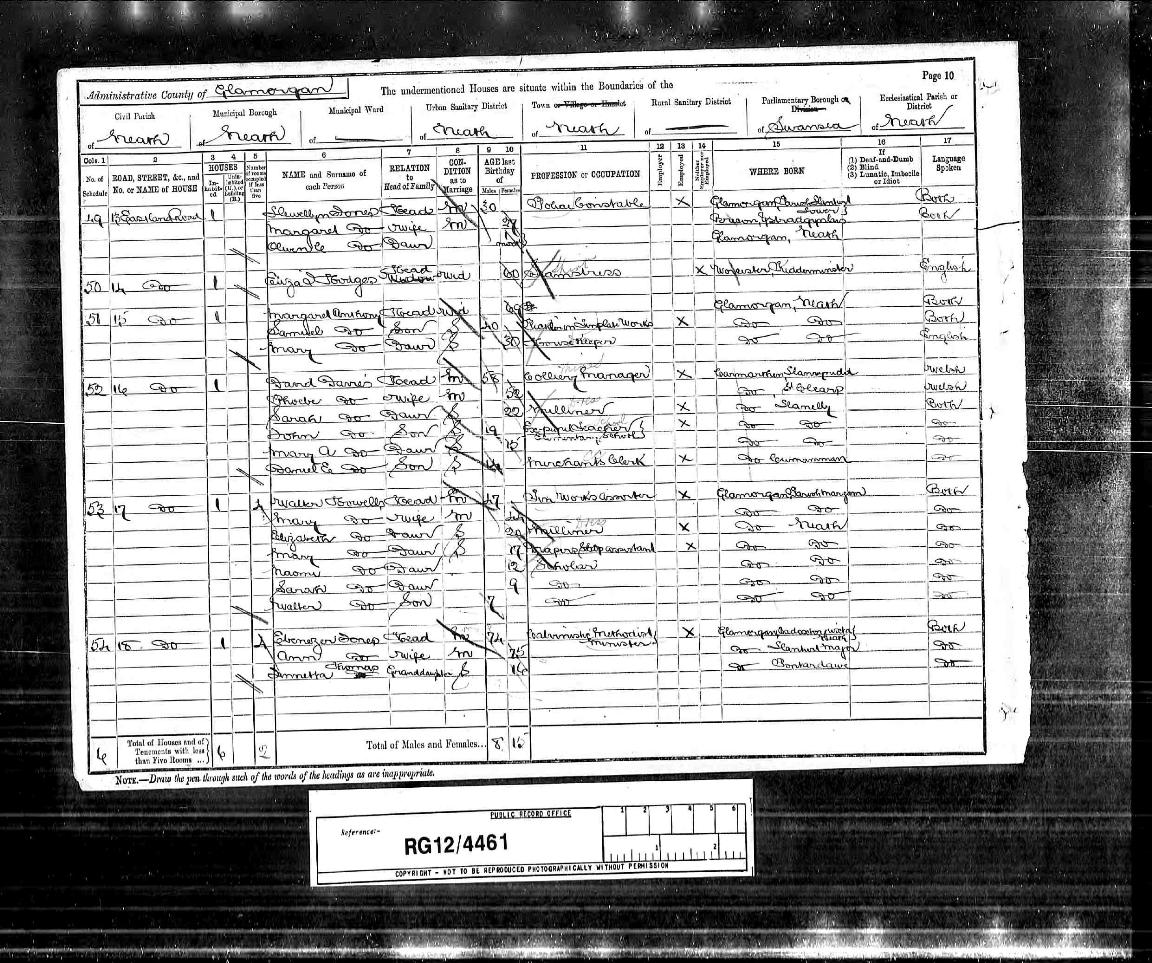 Page 10
Administrative County of Glamorgan
The undermentioned Houses are situate within the Boundaries of the
Civil Parish
of Neath
Municipal Borough
of Neath
Municipal Ward
of
Urban Sanitary District
of Neath
Town or Village or Hamlet
of Neath
Rural Sanitary District
of
Parliamentary Borough or Division
of Swansea
Ecclesiastical Parish or District
of Neath
Cols. 1 2 3 4 5 6 7 8 9 10 11 12 13 14 15 16 17
No. of Schedule
ROAD, STREET, &c., and No. or NAME of HOUSE
HOUSES
NAME and Surname of each Person
RELATION to Head of Family
CONDITION as to Marriage
AGE last Birthday of
Males Females
PROFESSION or OCCUPATION
Employer
Employed
Neither Employer nor Employed
WHERE BORN
If (1) Deaf-and-Dumb (2) Blind (3) Lunatic, Imbecile or Idiot
Language Spoken
49 13 Eastland Road 1 Llewellyn Jones Head M 30 Police Constable X Glamorgan, Both
Margaret Do Wife M Both
Do Daur Glamorgan, Neath
50 14 Do 1 Eliza Hodges Head Widow Wid 60 X Worcester, Kidderminster English
51 15 Do 1 Margaret Anthony Head Wid 69 Glamorgan, Neath Both
Samuel Do Son S 40 X Do Do Both
Mary Do Daur S 30 House Keeper Do Do English
52 16 Do 1 David Davies Head M 58 Colliery Manager X Carmarthen Welsh
Phoebe Do Wife M 52 Do St Clears Welsh
Sarah Do Daur S 22 Milliner X Do Llanelly Both
John Do Son S 19 X Do Do Do
Mary A Do Daur S 15 Do Do Do
Daniel E Do Son S 14 Merchants Clerk X Do Cwmamman Do
53 17 Do 1 4 Walter Howells Head M 47 Tin Works Assorter X Glamorgan, Parish Margam Both
Mary Do Wife M Do Do Do
Elizabeth Do Daur S 20 Milliner X Do Neath Do
Mary Do Daur S 17 Drapers Shop assistant X Do Do Do
Naomi Do Daur 12 Scholar Do Do Do
Sarah Do Daur 9 Do Do Do Do
Walter Do Son 7 Do Do Do Do
54 18 Do 1 4 Ebenezer Jones Head M 74 Calvinistic Methodist Minister X Glamorgan, Both
Ann Do Wife M 75 Do Llantwit Major Do
Thomas Granddaughter S 14 Do Pontardawe Do
6 Total of Houses and of Tenements with less than Five Rooms ...} 6 2 Total of Males and Females... 8 15
NOTE.—Draw the pen through such of the words of the headings as are inappropriate.
PUBLIC RECORD OFFICE
1 2 3 4 5 6
Reference:-
RG12/4461
1 2
COPYRIGHT - NOT TO BE REPRODUCED PHOTOGRAPHICALLY WITHOUT PERMISSION